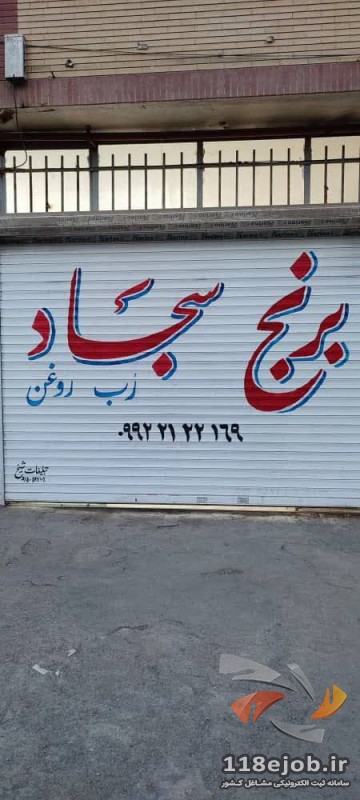 برنج سجاد
رُب روغن
۰۹۹۲ ۲۱ ۲۲ ۱۶۹
تبلیغات شیخ
118ejob.ir
سامانه ثبت الکترونیکی مشاغل کشور